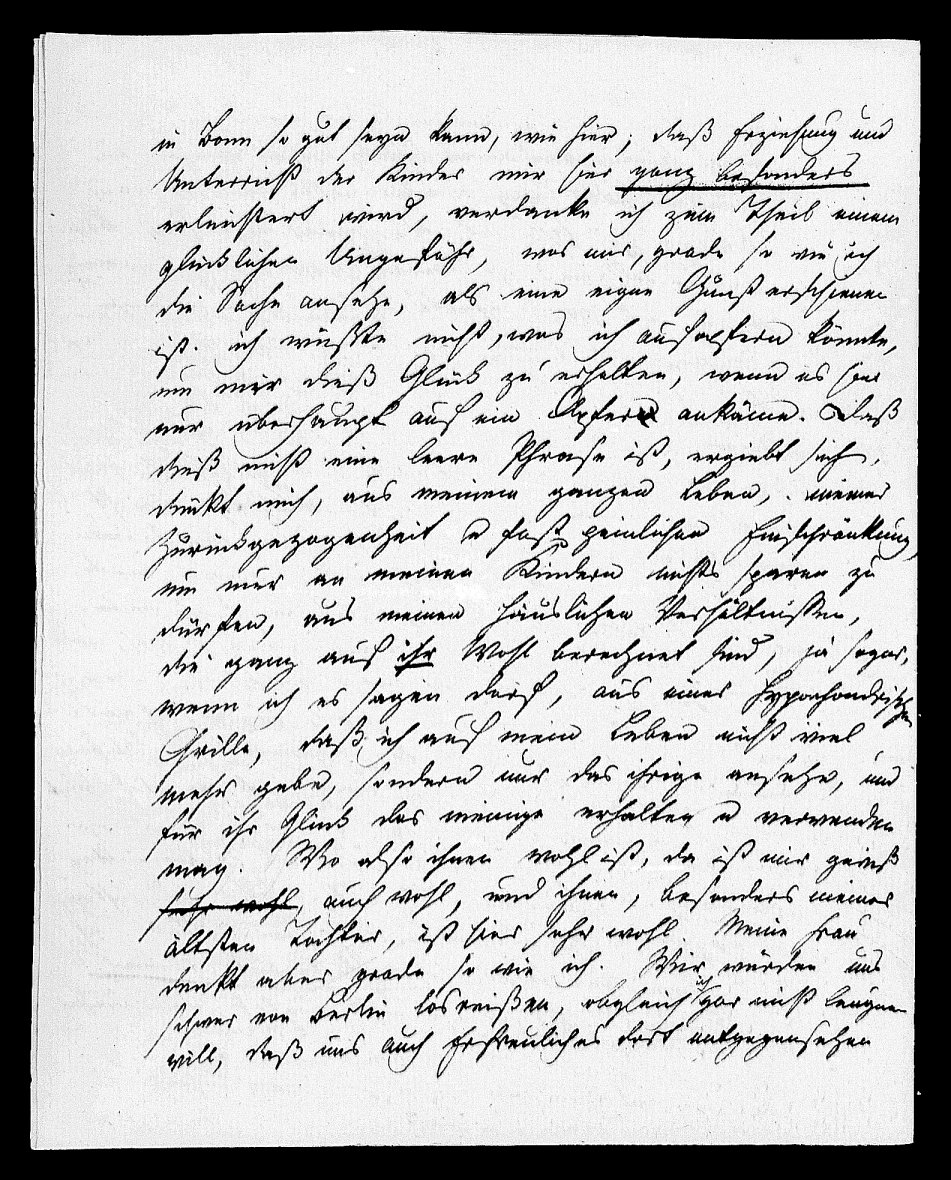 in Bonn so gut seyn kann, wie hier; daß Erziehung und
Unterricht der Kinder mir hier ganz besonders
erleichtert wird, verdanke ich zum Theil einem
glücklichen Ungefähr, was mir, grade so wie ich
die Sache ansehe, als eine eigne Gunst erschienen
ist. ich wüßte nicht, was ich aufopfern könnte,
um mir dieß Glück zu erhalten, wenn es hier
nur überhaupt auf ein Opfer ankäme. Daß
dieß nicht eine leere Phrase ist, ergiebt sich,
dünkt mich, aus meinem ganzen Leben, meiner
Zurückgezogenheit u fast peinlichen Einschränkung,
um nur an meinen Kindern nichts sparen zu
dürfen, aus meinen häuslichen Verhältnissen,
die ganz auf ihr Wohl berechnet sind, ja sogar,
wenn ich es sagen darf, aus einer hypochondrischen
Grille, daß ich auf mein Leben nicht viel
mehr gebe, sondern nur das ihrige ansehe, und
für ihr Glück das meinige erhalten u verwenden
mag. Wo also ihnen wohl ist, da ist mir gewiß
sehr wohl, auch wohl, und ihnen, besonders meiner
ältsten Tochter, ist hier sehr wohl. Meine Frau
denkt aber grade so wie ich. Wir würden uns
schwer von Berlin losreißen, obgleich ich gar nicht leugnen
will, daß uns auch Erfreuliches dort entgegensehen